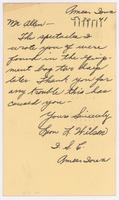 Ames Iowa
Mr. Allen —
The spectacles I
wrote you of were
found in the equip-
ment bag two days
later. Thank you for
any trouble this has
caused you —
Yours Sincerely
Tom F. Wilson
I S C
Ames Iowa